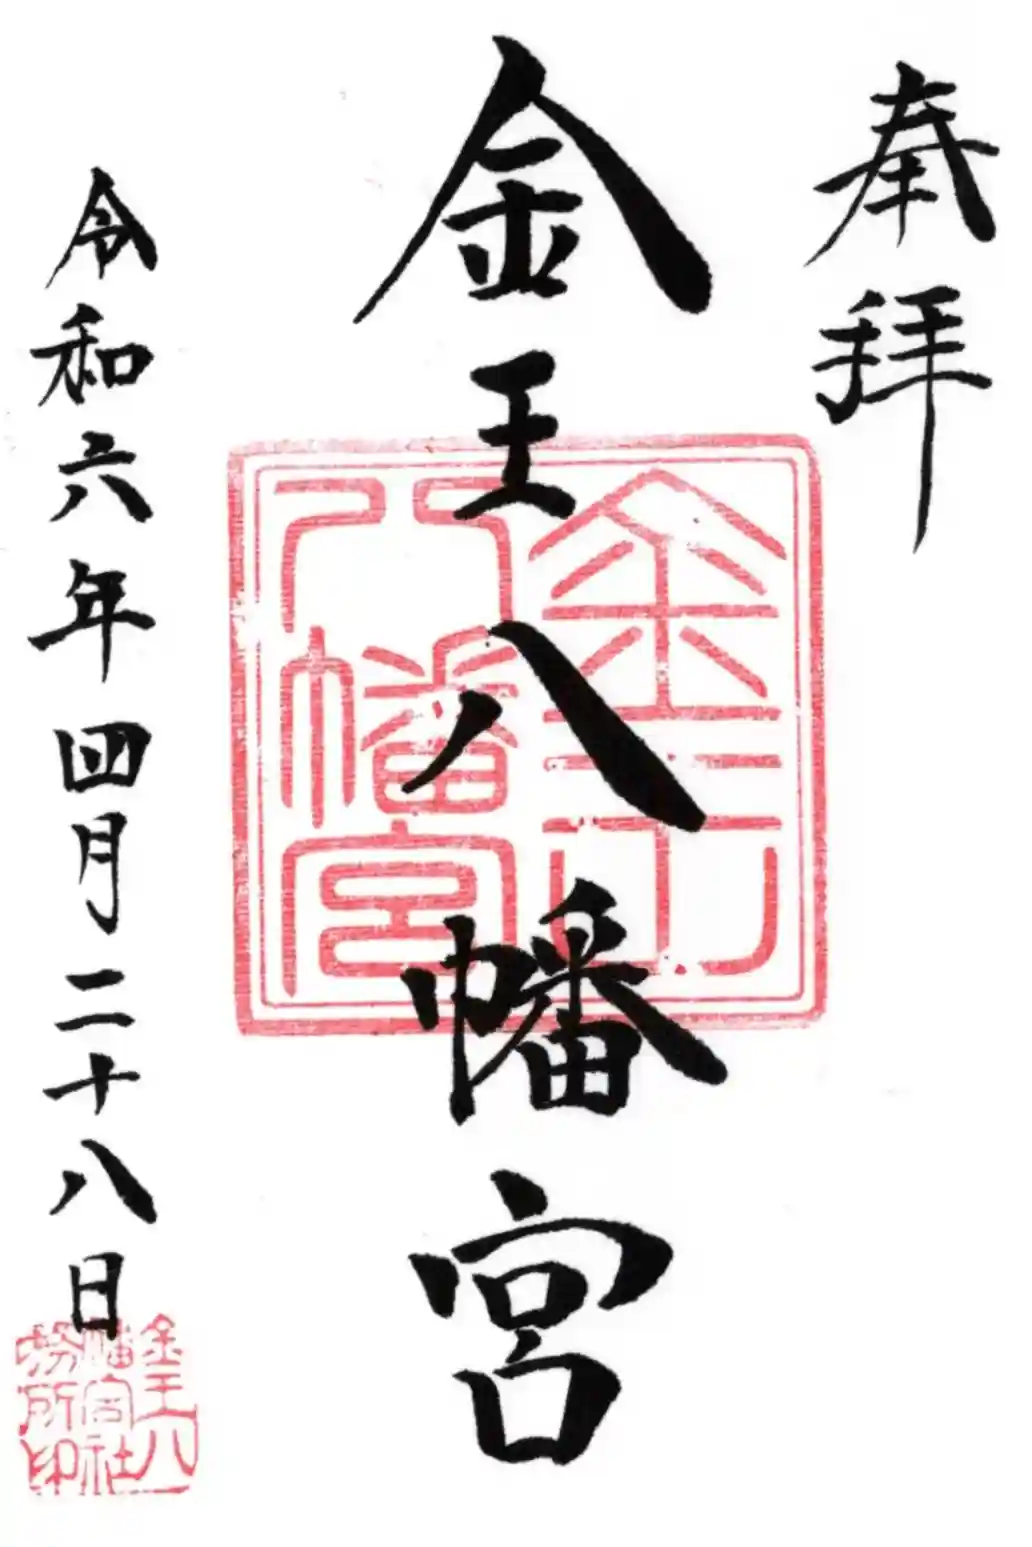 奉拝
金王八幡宮
金王
八幡宮
令和六年四月二十八日
金王八
幡宮社
務所印